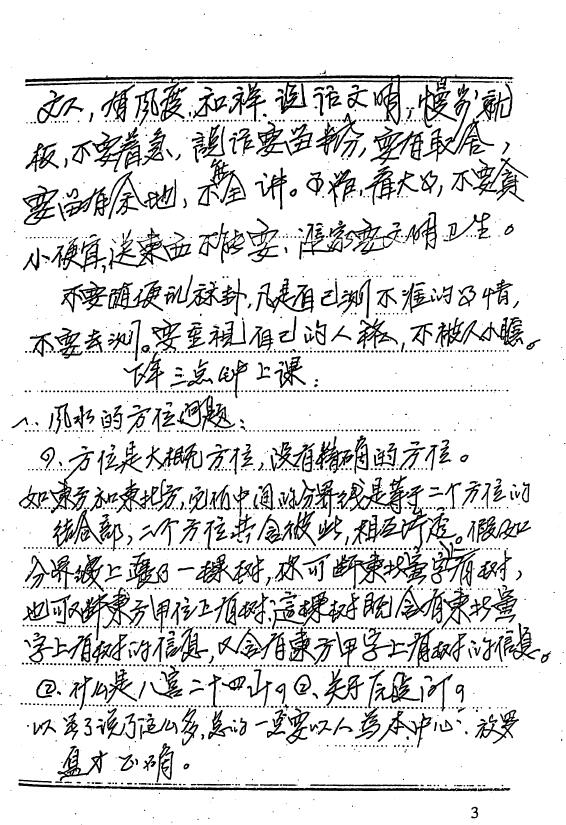 文人，有风度，和祥，说话文明，慢步就
板，不要着急，说话要留余分，要有取舍，
要留有余地，不全讲。看大的，不要贪
小便宜，送東西不能要，居家要文明卫生。
不要随便乱社卦，凡是自己测不准的的情，
不要去测。要重视自己的人格，不被人小瞧。
下午三点钟上课：
一、风水的方位问题：
①、方位是大概方位，没有精确的方位。
如東方和東北方，它们中间的分界线是等于二个方位的
结合部，二个方位共含彼此，相互学居。假如
分界线上要有一棵树，你可断東北寅字有树，
也可以断東方甲位上有树，這棵树既含有東北寅
字上有树的信息，又含有東方甲字上有树的信息。
②、什么是八宫二十四山？②、关于
以至于说了这么多，总的一点要以人為本中心，
才正确。
3